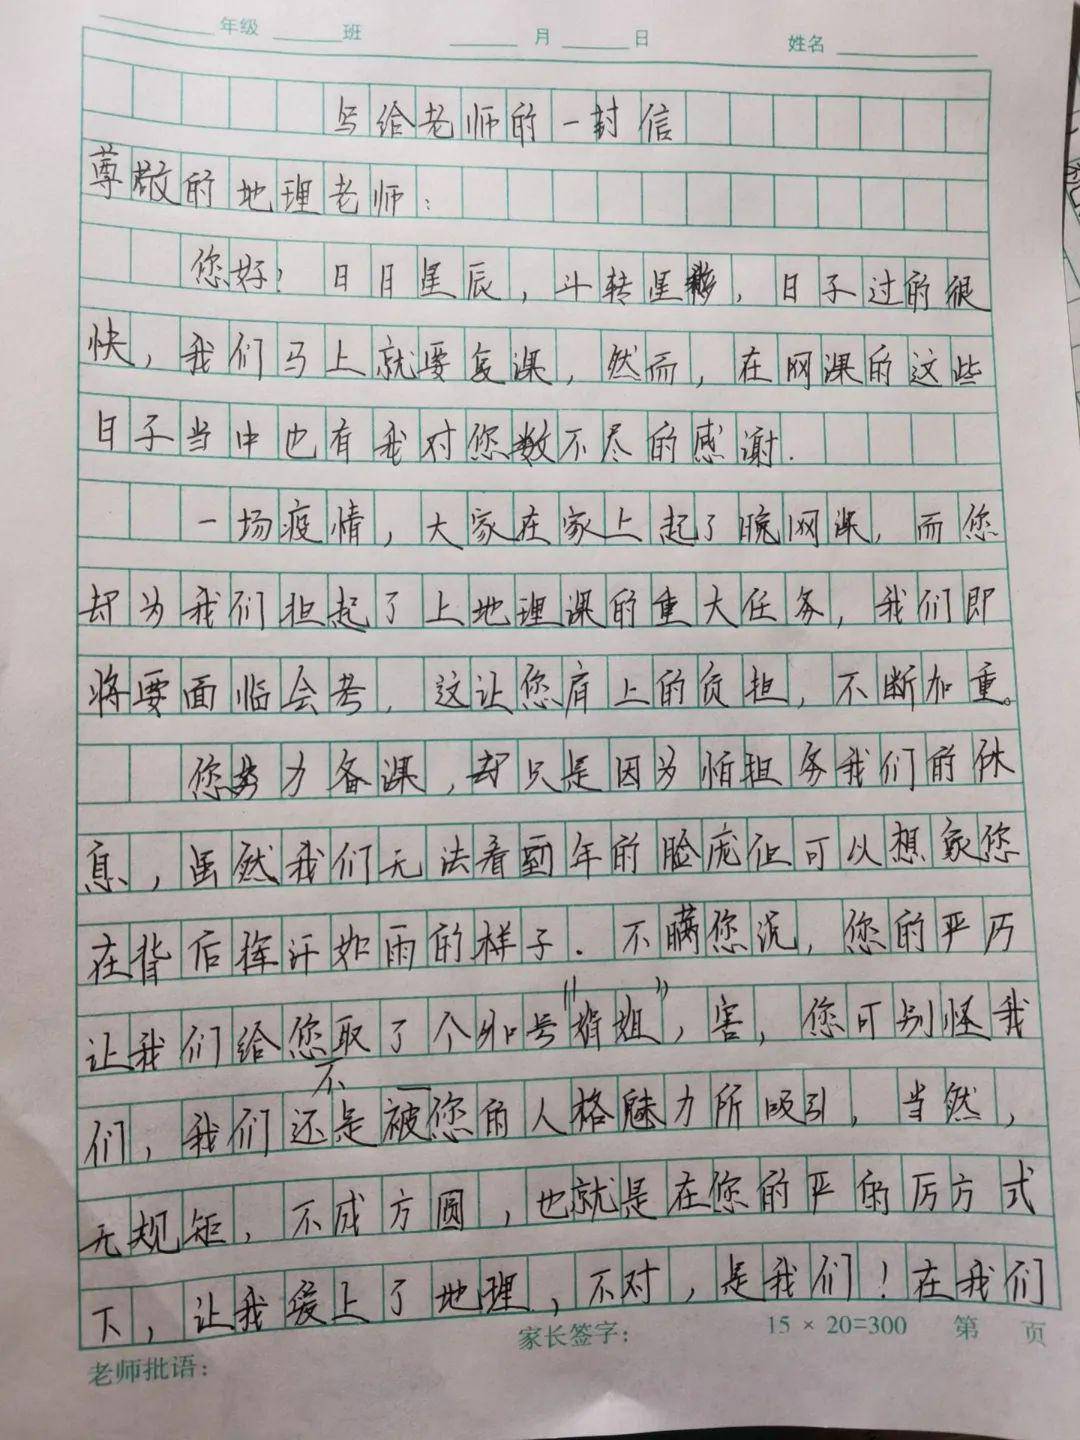 年级 班 月 日 姓名
写给老师的一封信
尊敬的地理老师：
您好！日月星辰，斗转星移，日子过的很
快，我们马上就要复课，然而，在网课的这些
日子当中也有我对您数不尽的感谢.
一场疫情，大家在家上起了晚网课，而您
却为我们担起了上地理课的重大任务，我们即
将要面临会考，这让您肩上的负担，不断加重。
您努力备课，却只是因为怕担务我们的休
息，虽然我们无法看到年的脸庞但可以想象您
在背后挥汗如雨的样子.不瞒您说，您的严厉
让我们给您取了个外号“婿姐”，害，您可别怪我
们，我们还不是被您的人格魅力所吸引，当然，
无规矩，不成方圆，也就是在您的严的厉方式
下，让我爱上了地理，不对，是我们！在我们
老师批语： 家长签字： 15 × 20=300 第 页